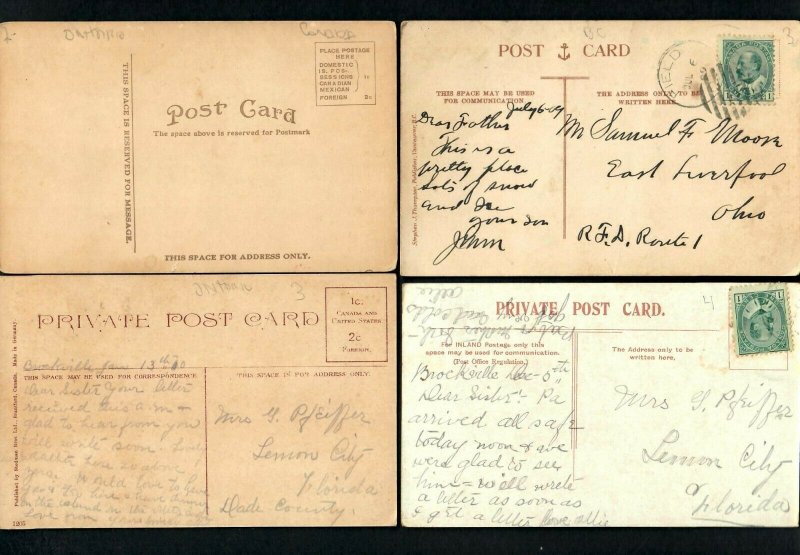 Ontario
Canada
PLACE POSTAGE
HERE
DOMESTIC
IS. POS-
SESSIONS
CANADIAN
MEXICAN
1c
FOREIGN 2c
Post Card
The space above is reserved for Postmark
THIS SPACE IS RESERVED FOR MESSAGE.
THIS SPACE FOR ADDRESS ONLY.
BC
POST CARD
THIS SPACE MAY BE USED
FOR COMMUNICATION
THE ADDRESS ONLY TO BE
WRITTEN HERE.
July 6-09
Dear Father
This is a
pretty place
lots of snow
and Ice
your son
John
Mr Samuel F Moore
East Liverpool
Ohio
R.F.D. Route 1
Ontario
3
PRIVATE POST CARD
1c.
CANADA AND
UNITED STATES
2c
FOREIGN.
Brockville Jan 13th
THIS SPACE MAY BE USED FOR CORRESPONDENCE
THIS SPACE IS FOR ADDRESS ONLY.
Dear Sister Your letter
received this a.m +
glad to hear from you
will write soon
Mrs G. Pfeiffer
Lemon City
Florida
Dade County
Published by Stedman Bros Ltd., Brantford, Canada. Made in Germany.
1205
4
PRIVATE POST CARD.
For INLAND Postage only this
space may be used for communication.
(Post Office Regulation.)
The Address only to be
written here.
Brockville Dec 5th
Dear Sister:- Pa
arrived all safe
today noon + we
were glad to see
him - will write
a letter as soon as
I get a letter love Allie
Mrs G. Pfeiffer
Lemon City
Florida